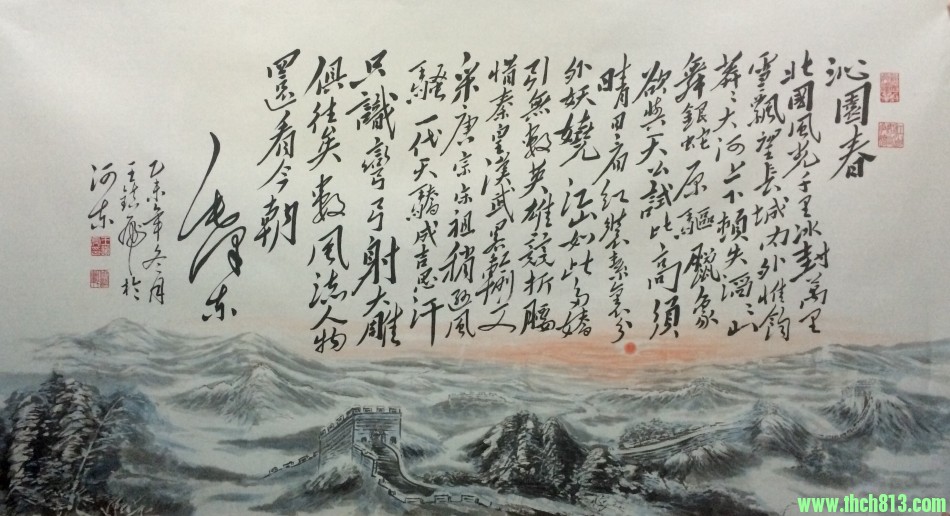 沁園春
北國風光千里冰封萬里
雪飄望長城內外惟餘
莽々大河上下頓失滔々山
舞銀蛇原驅蠟象
欲與天公試比高須
晴日看紅裝素裹分
外妖嬈江山如此多嬌
引無數英雄競折腰
惜秦皇漢武略輸文
采唐宗宋祖稍遜風
騷一代天驕成吉思汗
只識彎弓射大雕
俱往矣數風流人物
還看今朝
毛澤东
乙未年冬月
王鎮飛於
河东
www.lhch813.com